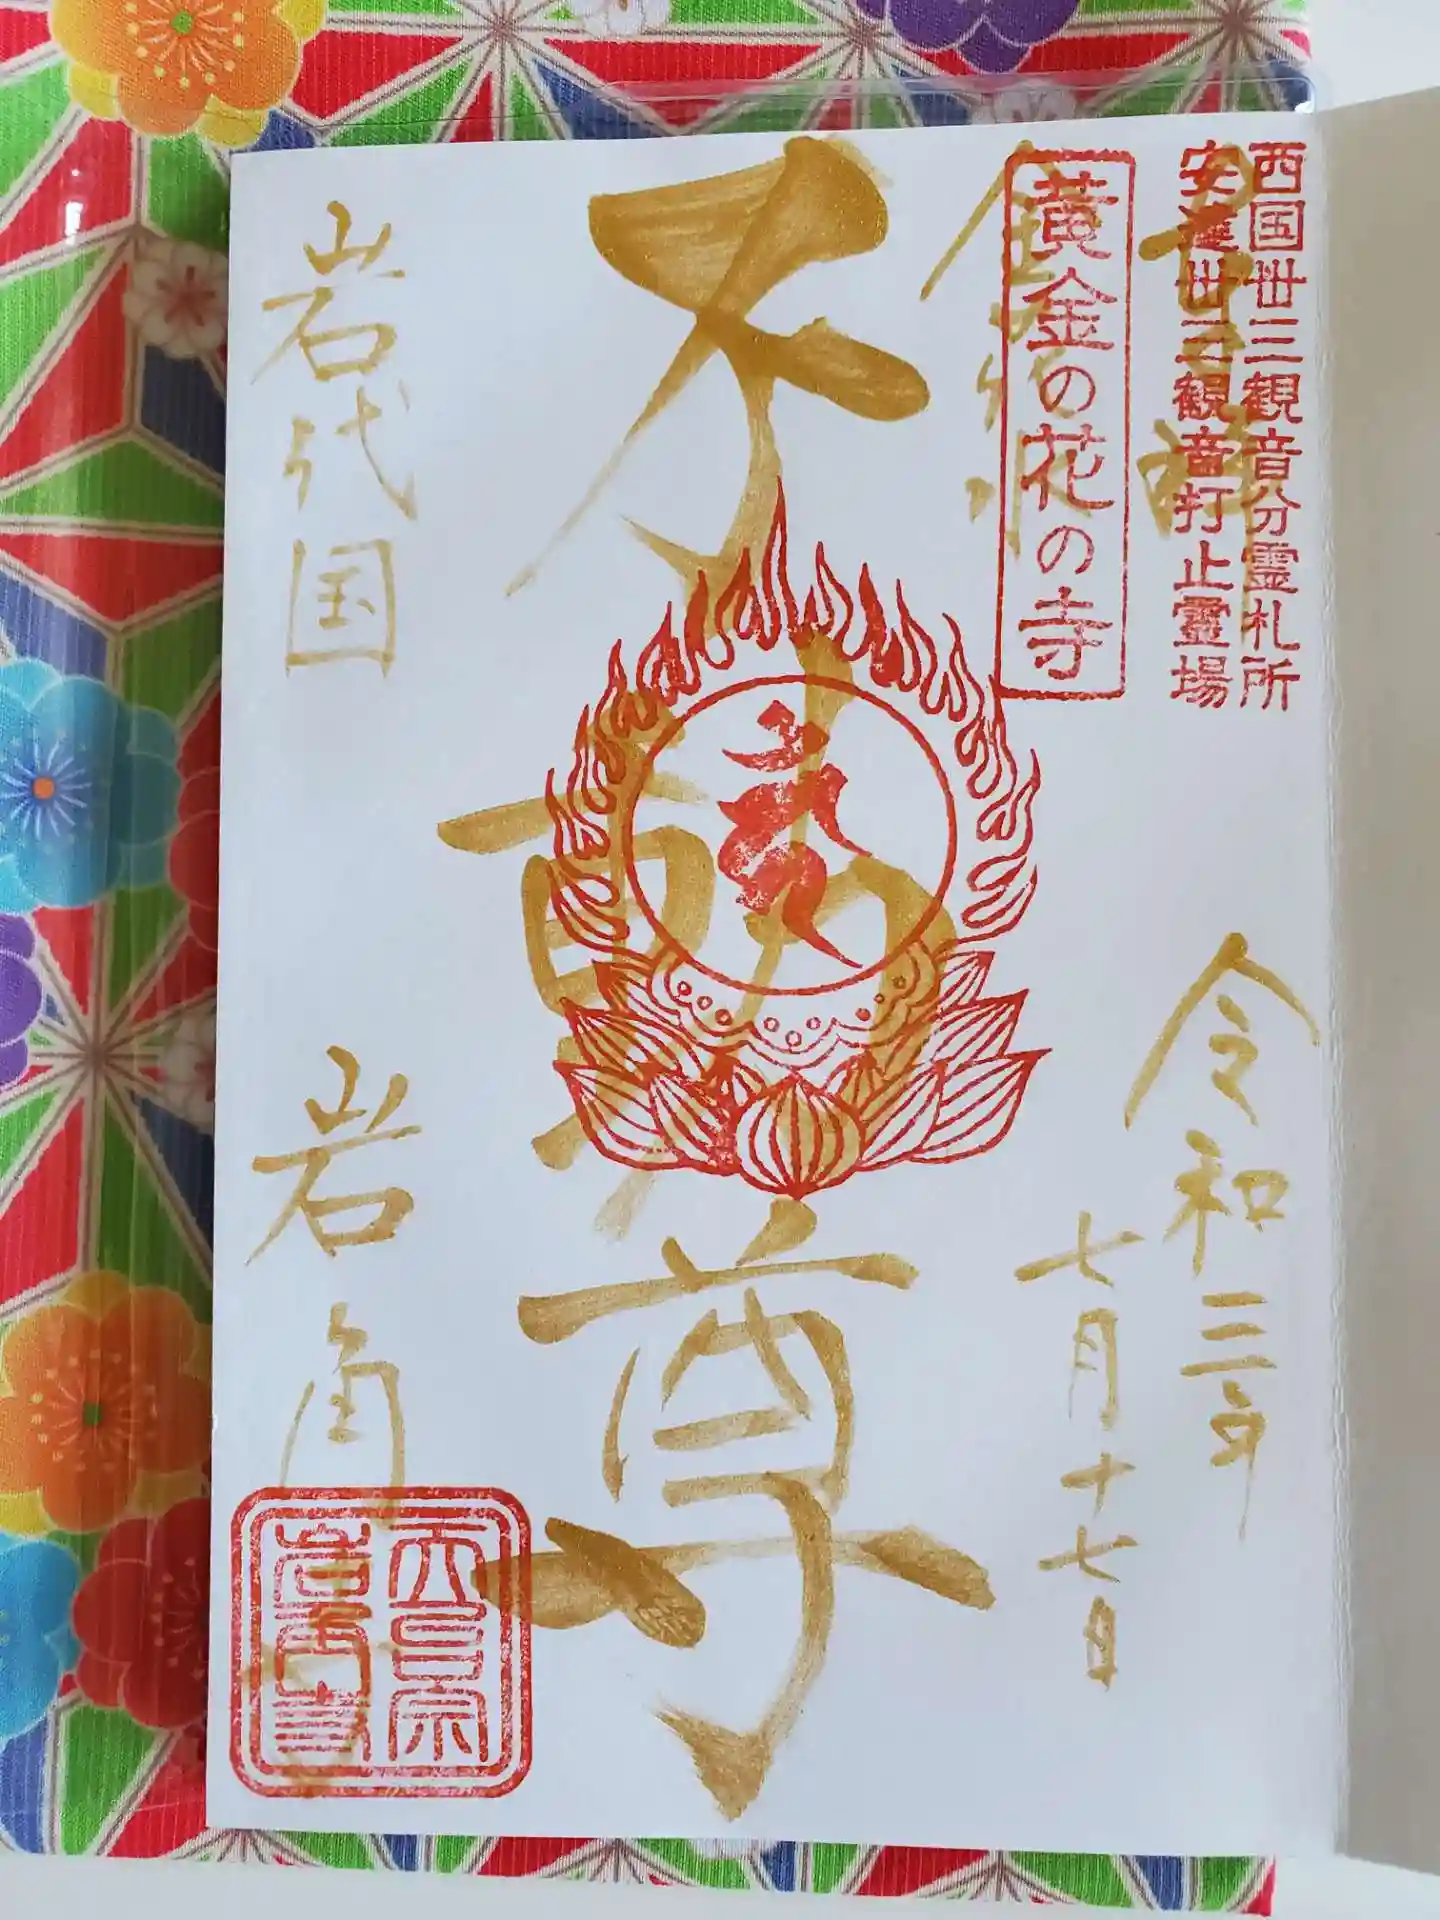 西国丗三観音分霊札所
安達丗三観音打止霊場
奉拝
黄金の花の寺
令和三年
七月十七日
不動尊
岩代国
岩角